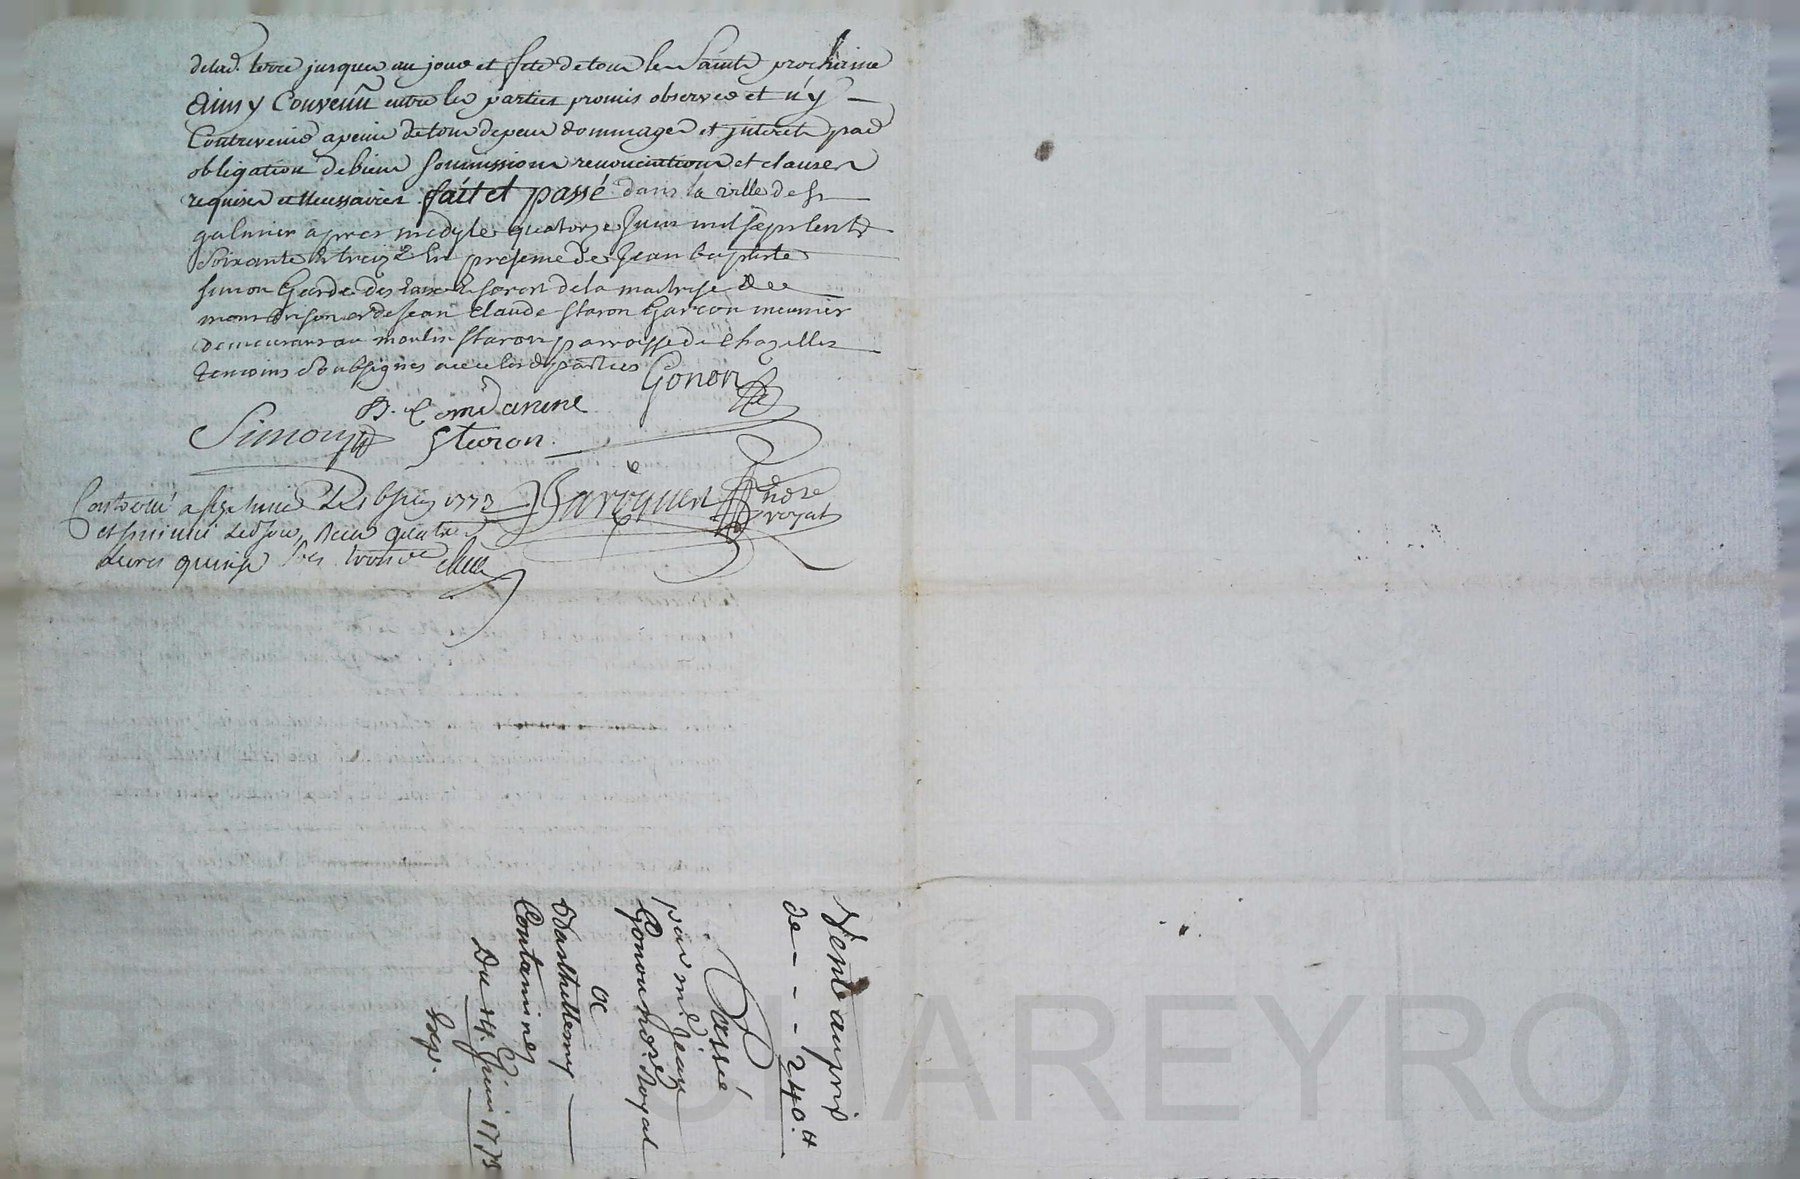 delad. terre jusques au jour et fete de tous les Saints prochaine
Ainsy Convenû entre les parties promis observer et n'y
Contrevenir apeine detous depens dommages et jnterets par
obligation debiens soumissions renonciations et clauses
requises et Necessaires fait et passé dans la ville de St
galmier apres midy le quatorze Juin mil sept cents
Soixante et treize En presence de Jean baptiste
Simon Garde des Eaux et forest de la maitrise de
montbrison et de Jean Claude Staron Garçon meunier
demeurant au moulin Staron parroisse de Chazelles
temoins Soubsignés avec lesd. parties Gonon
B. Contamine
Simon Staron
Controllé a St galmier Le 1773
et jnsinué ledjour, Reçu quatre
Livres quinse sols
nore
royal
Vente au prix
de - - - 240.tt
Passé
par me. Jean
Gonon nore. Royal
a
Barthellemy
Contamine
Du 14. Juin 1773
Exp.
Pascal CHAREYRON